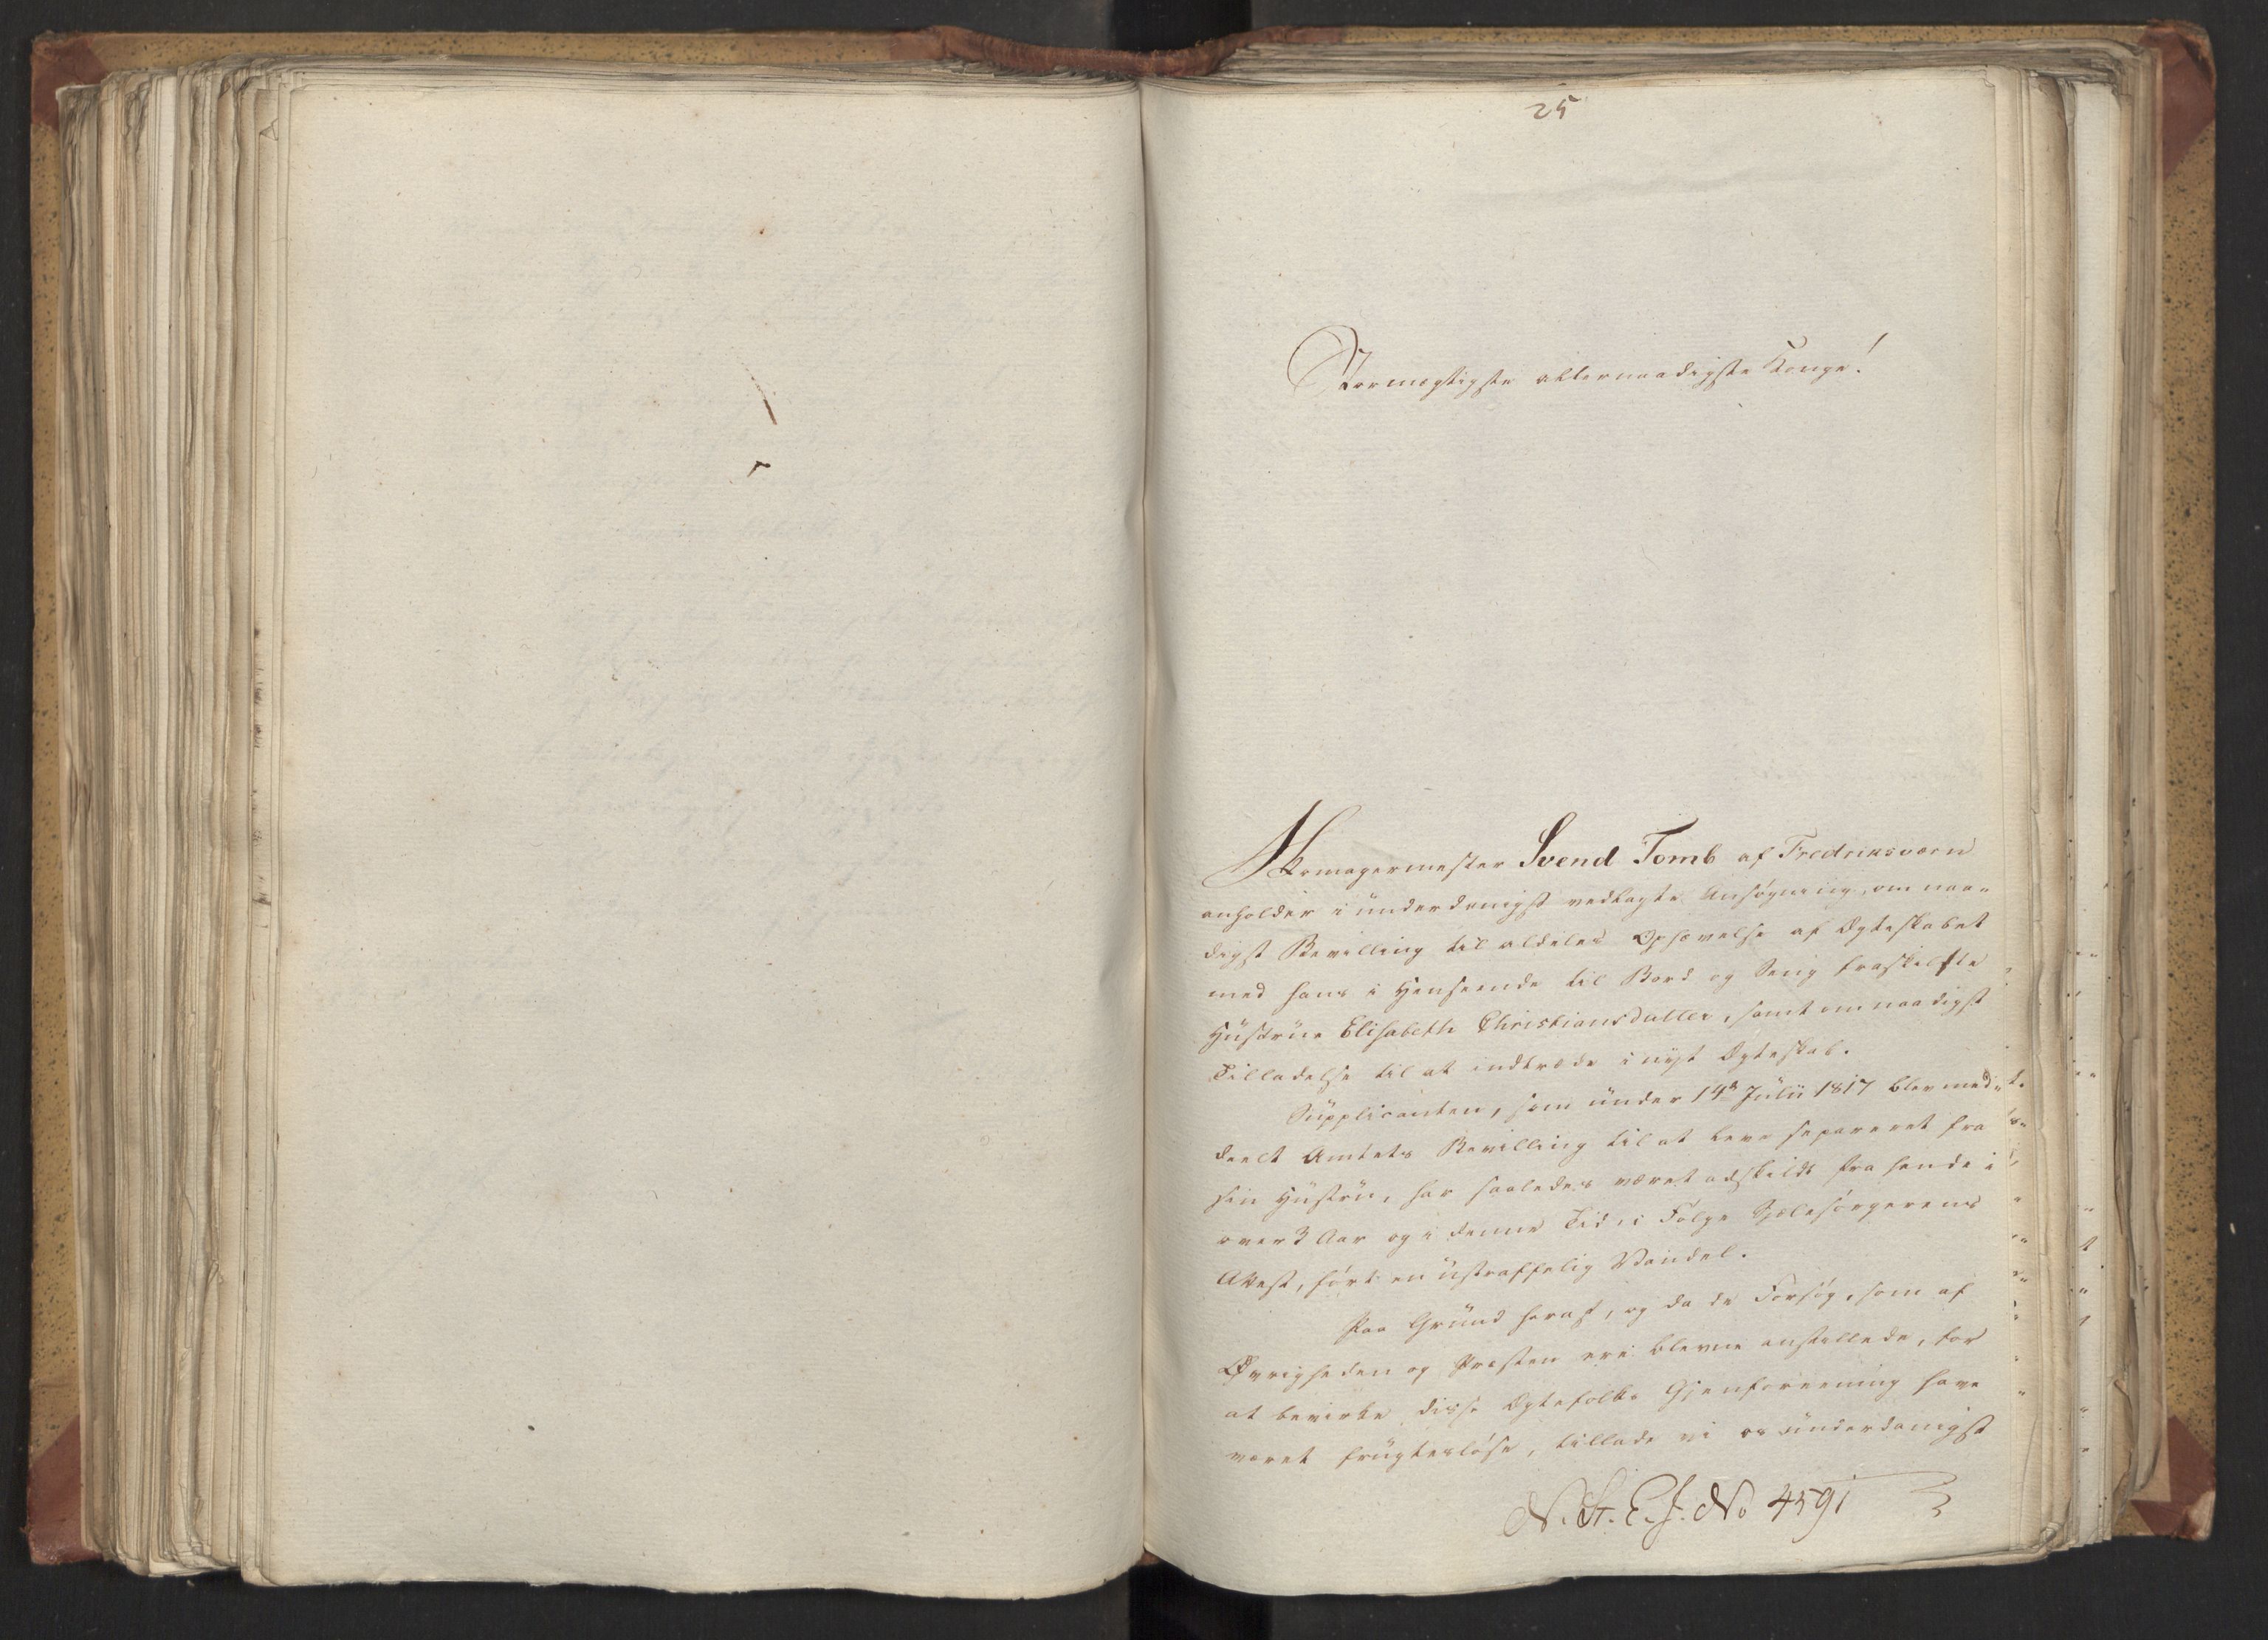 25
Stormægtigste allernaadigste Konge!
Skomagermester Svend Tomb af Fredriksværn
anholder i underdanigst vedlagte Ansøgning, om naa-
digst Bevilling til aldeles Ophævelse af Ægteskabet
med hans i Henseende til Bord og Seng fraskilte
Hüstrüe Elisabeth Christiansdatter, samt om naadigst
Tilladelse til at indtræde i nyt Ægteskab.
Süpplicanten, som ünder 14de Jülii 1817 blev med-
deelt Amtets Bevilling til at leve separeret fra
sin Hüstrü, har saaledes været adskildt fra hende i
over 3 Aar og i denne Tid, i Følge Sjælesørgerens
Attest, ført en üstraffelig Vandel.
Paa Gründ heraf, og da de Forsøg, som af
Øvrigheden og Præsten ere blevne anstillede, for
at bevirke disse Ægtefolks Gjenforeening have
været frügtesløse, tillade vi os ünderdanigst
N. St. E. J. No 4591